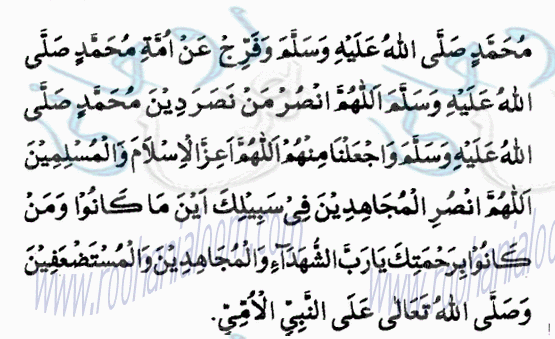 مُحَمَّدٍ صَلَّى اللهُ عَلَيْهِ وَسَلَّمَ وَفَرِّجْ عَنْ اُمَّةِ مُحَمَّدٍ صَلَّى
اللهُ عَلَيْهِ وَسَلَّمَ اَللّٰهُمَّ انْصُرْ مَنْ نَصَرَ دِيْنَ مُحَمَّدٍ صَلَّى
اللهُ عَلَيْهِ وَسَلَّمَ وَاجْعَلْنَا مِنْهُمْ اَللّٰهُمَّ اَعِزَّ الْاِسْلَامَ وَالْمُسْلِمِيْنَ
اَللّٰهُمَّ انْصُرِ الْمُجَاهِدِيْنَ فِيْ سَبِيْلِكَ اَيْنَ مَا كَانُوْا وَمَنْ
كَانُوْا بِرَحْمَتِكَ يَا رَبَّ الشُّهَدَآءِ وَالْمُجَاهِدِيْنَ وَالْمُسْتَضْعَفِيْنَ
وَصَلَّى اللهُ تَعَالٰى عَلَى النَّبِيِّ الْاُمِّيِّ.